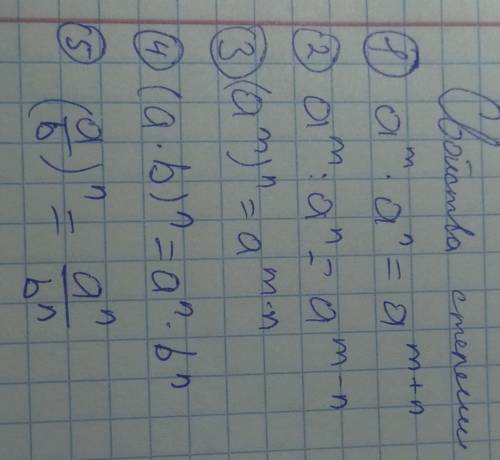 Свойства степени
① aᵐ · aⁿ = aᵐ⁺ⁿ
② aᵐ : aⁿ = aᵐ⁻ⁿ
③ (aᵐ)ⁿ = a^(m·n)
④ (a · b)ⁿ = aⁿ · bⁿ
⑤ (a/b)ⁿ = aⁿ/bⁿ